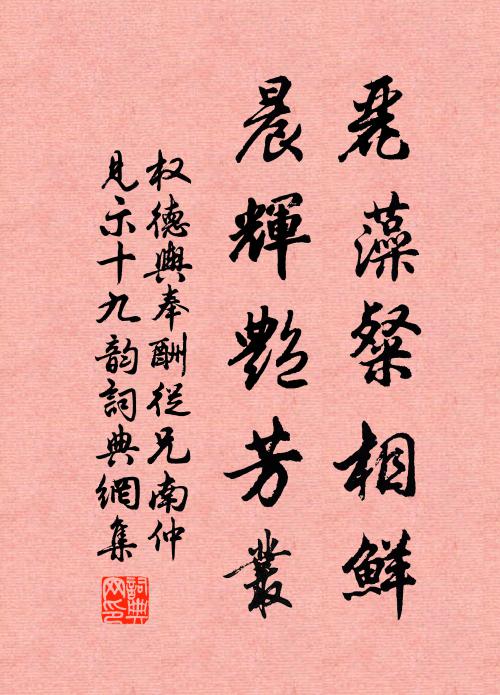 麗藻粲相鮮
晨輝艷芳叢
权德輿奉酬從兄南仲
見示十九韵詞典網集
詞典
网印